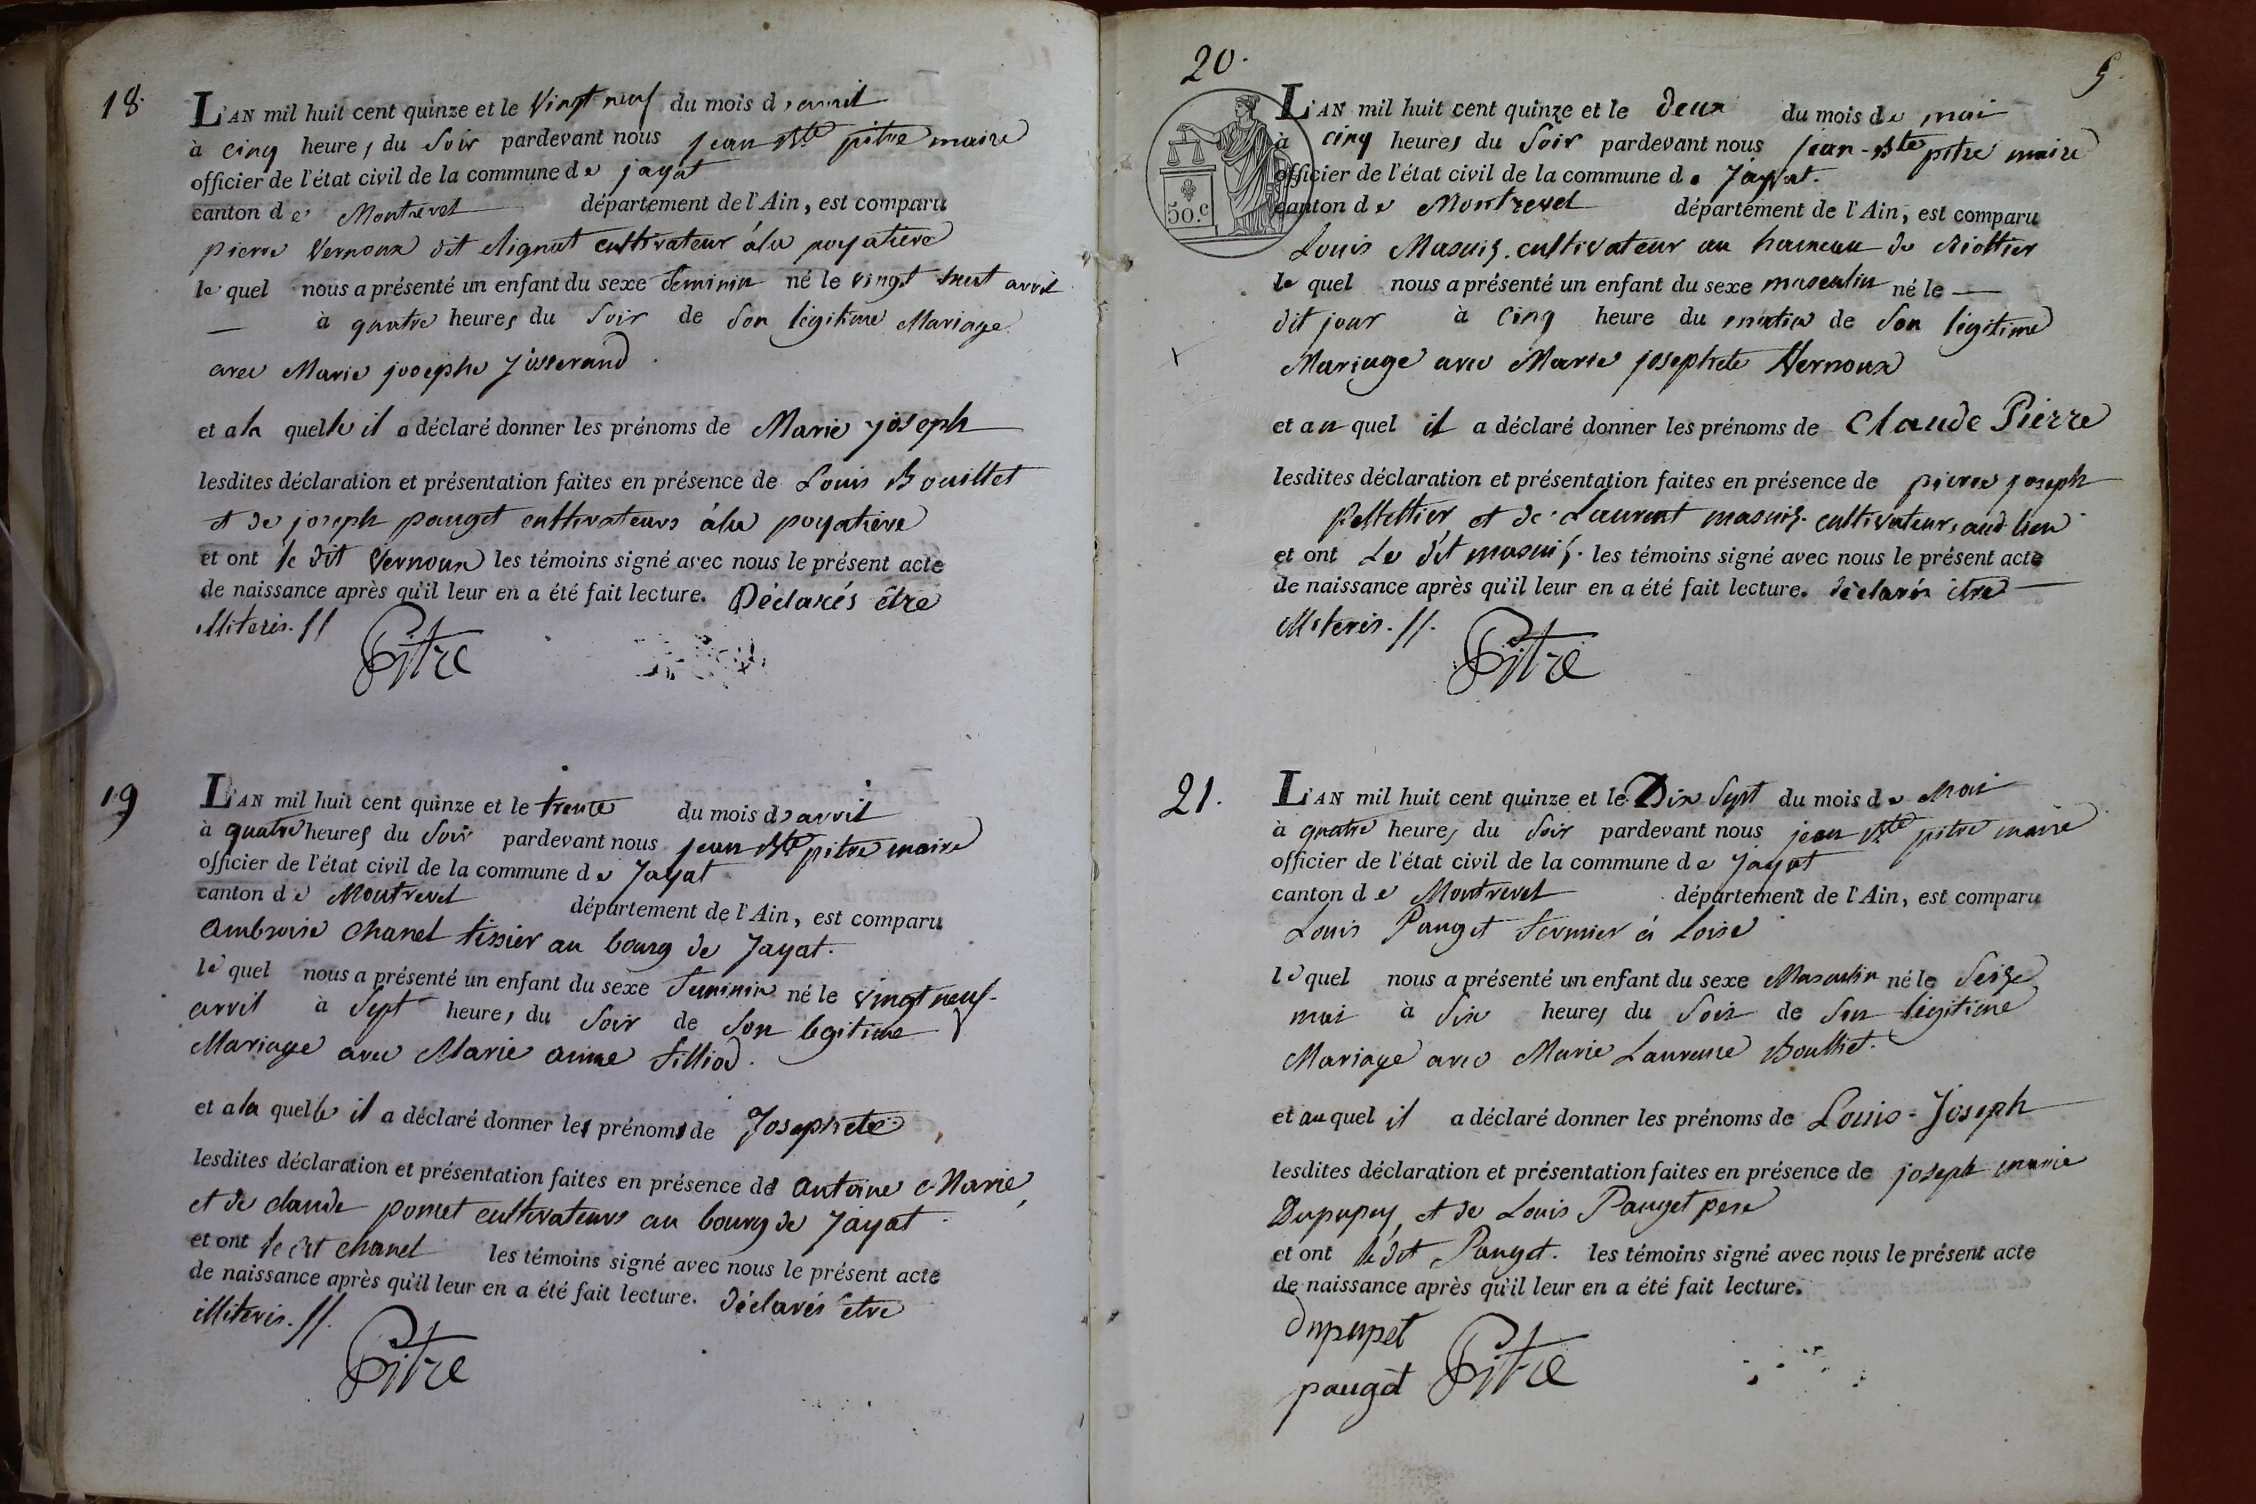 18.
L'AN mil huit cent quinze et le Vingt neuf du mois d'avril
à cinq heures du Soir pardevant nous jean Bte pitre maire
officier de l'état civil de la commune de jayat
canton de Montrevel département de l'Ain, est comparu
pierre Vernoux dit cultivateur à la poyatiere
le quel nous a présenté un enfant du sexe feminin né le vingt huit avril
à quatre heures du Soir de Son légitime Mariage
avec Marie josephe josserand
et a la quelle il a déclaré donner les prénoms de Marie joseph
lesdites déclaration et présentation faites en présence de Louis Bouillet
et de joseph pauget cultivateurs à la poyatiere
et ont le dit Vernoux les témoins signé avec nous le présent acte
de naissance après qu'il leur en a été fait lecture. Déclarés être
illiteris. //
Pitre
19
L'AN mil huit cent quinze et le trente du mois d'avril
à quatre heures du Soir pardevant nous jean Bte pitre maire
officier de l'état civil de la commune de Jayat
canton de Montrevel département de l'Ain, est comparu
ambroise Chanel tissier au bourg de Jayat.
le quel nous a présenté un enfant du sexe feminin né le vingt neuf
avril à Sept heures du Soir de Son legitime
Mariage avec Marie anne filliod.
et a la quelle il a déclaré donner les prénoms de Josephete
lesdites déclaration et présentation faites en présence de antoine Marie
et de claude pomet cultivateurs au bourg de Jayat.
et ont le dit chanel les témoins signé avec nous le présent acte
de naissance après qu'il leur en a été fait lecture. déclarés être
illiteris. //.
Pitre
20.
5.
50.c
L'AN mil huit cent quinze et le deux du mois de mai
à cinq heures du Soir pardevant nous jean-Bte pitre maire
officier de l'état civil de la commune de Jayat.
canton de Montrevel département de l'Ain, est comparu
Louis Masuis. cultivateur au hameau de Riottier
le quel nous a présenté un enfant du sexe masculin né le
dit jour à cinq heure du matin de Son légitime
Mariage avec Marie josephete Vernoux
et au quel il a déclaré donner les prénoms de Claude Pierre
lesdites déclaration et présentation faites en présence de pierre joseph
pelletier et de Laurent masuis. cultivateurs aud. lieu
et ont Le dit masuis. les témoins signé avec nous le présent acte
de naissance après qu'il leur en a été fait lecture. déclarés être
illiteris. //.
Pitre
21.
L'AN mil huit cent quinze et le Dix Sept du mois de Mai
à quatre heures du Soir pardevant nous jean Bte pitre maire
officier de l'état civil de la commune de Jayat
canton de Montrevel département de l'Ain, est comparu
Louis Pauget fermier à Loise
le quel nous a présenté un enfant du sexe Masculin né le Seize
mai à Six heures du Soir de Son légitime
Mariage avec Marie Laurence Boulliet.
et au quel il a déclaré donner les prénoms de Louis-Joseph
lesdites déclaration et présentation faites en présence de joseph marie
Dupupey, et de Louis Pauget pere
et ont le dit Pauget. les témoins signé avec nous le présent acte
de naissance après qu'il leur en a été fait lecture.
Dupupet
paugèt Pitre